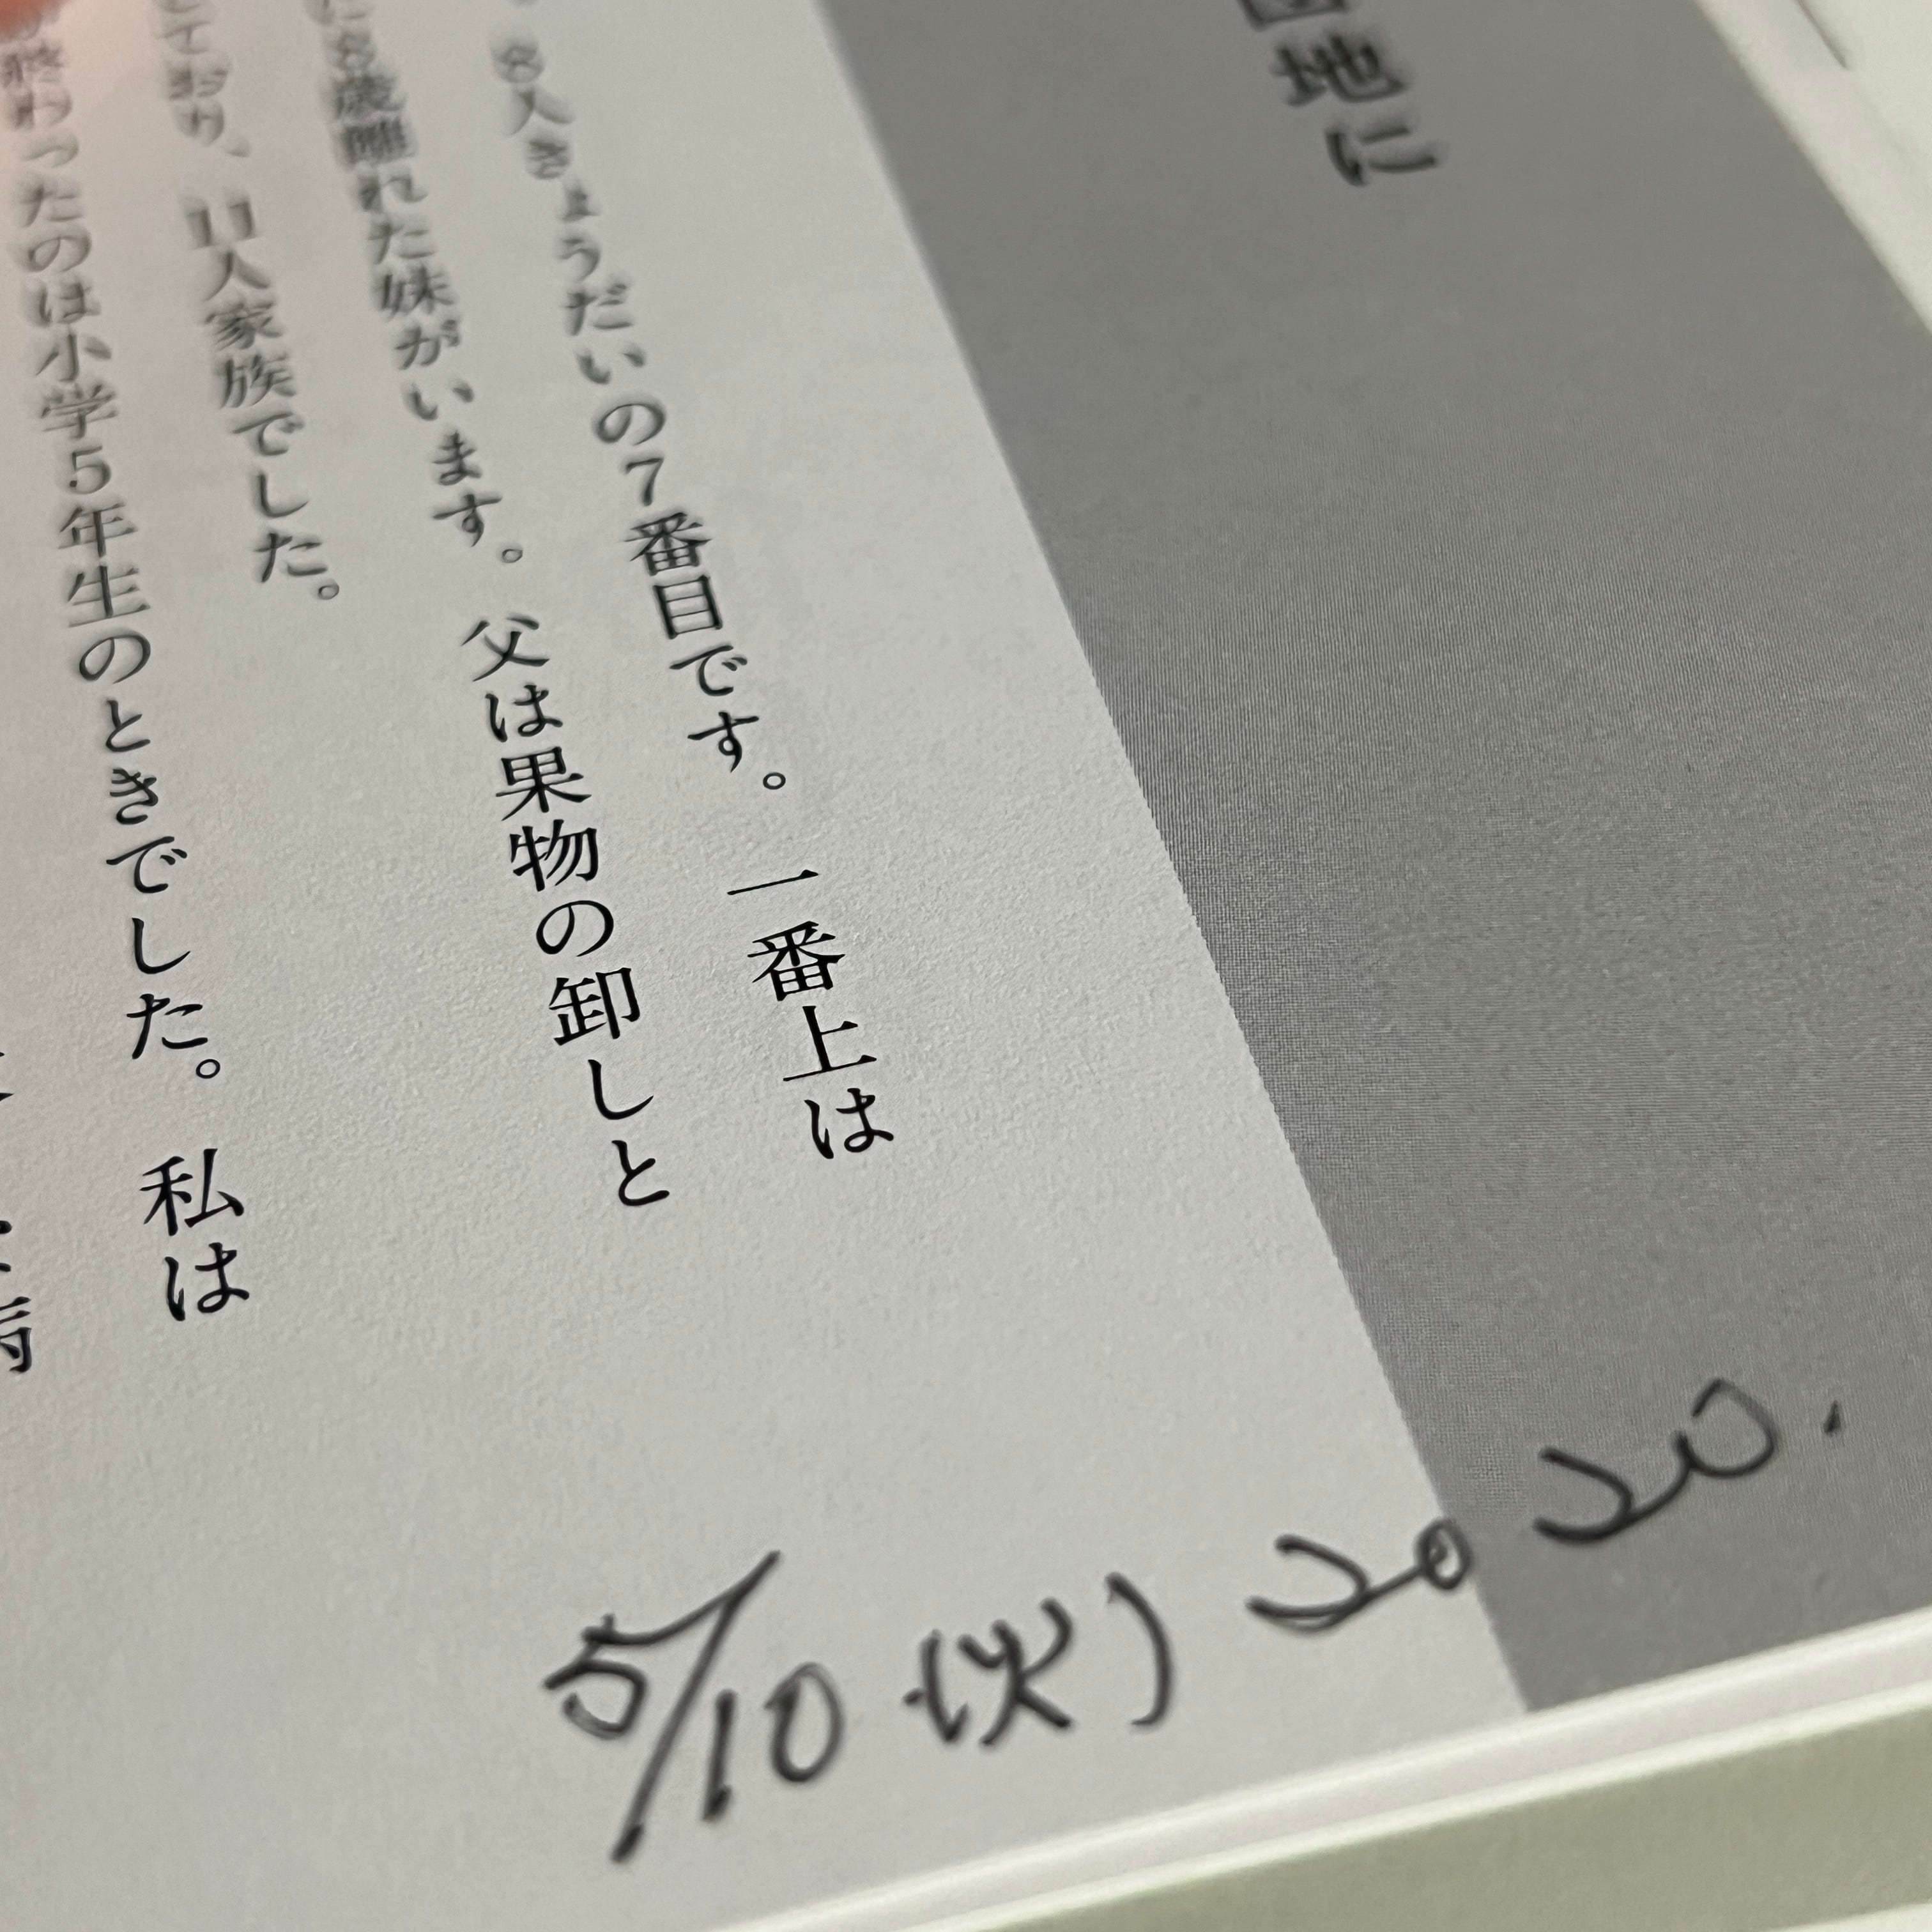 団地に
8人きょうだいの7番目です。一番上は
に8歳離れた妹がいます。父は果物の卸しと
ており、11人家族でした。
終わったのは小学5年生のときでした。私は
5/10(火) 20 20.